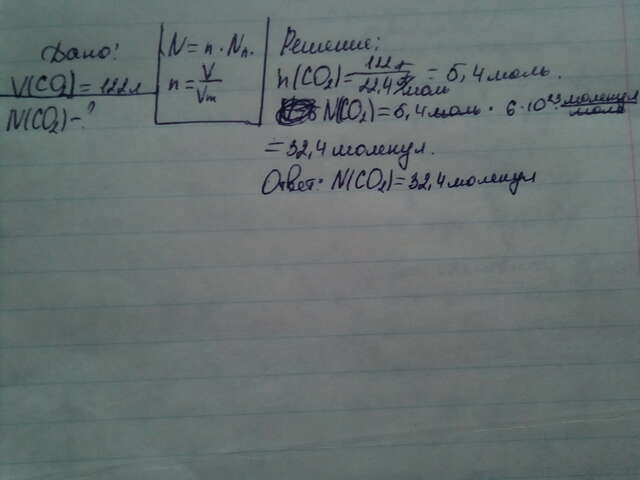 Дано:
V(CO2) = 122л
N(CO2) - ?
N = n · Nл.
n = V/Vm
Решение:
n(CO2) = 122л / 22,4 л/моль = 5,4 моль.
N(CO2) = 5,4 моль · 6 · 10²³ молекул/моль
= 32,4 молекул.
Ответ: N(CO2) = 32,4 молекул